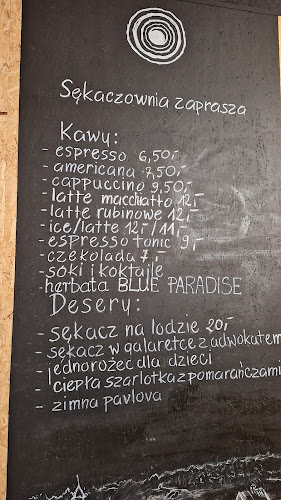 Sękaczownia zaprasza
Kawy:
- espresso 6,50,-
- americana 7,50,-
- cappuccino 9,50,-
- latte macchiatto 12,-
- latte rubinowe 12,-
- ice/latte 12,-/11,-
- espresso tonic 9,-
- czekolada 7,-
- soki i koktajle
- herbata BLUE PARADISE
Desery:
- sękacz na lodzie 20,-
- sękacz w galaretce z adwokatem
- jednorożec dla dzieci
- ciepła szarlotka z pomarańczami
- zimna pavlova